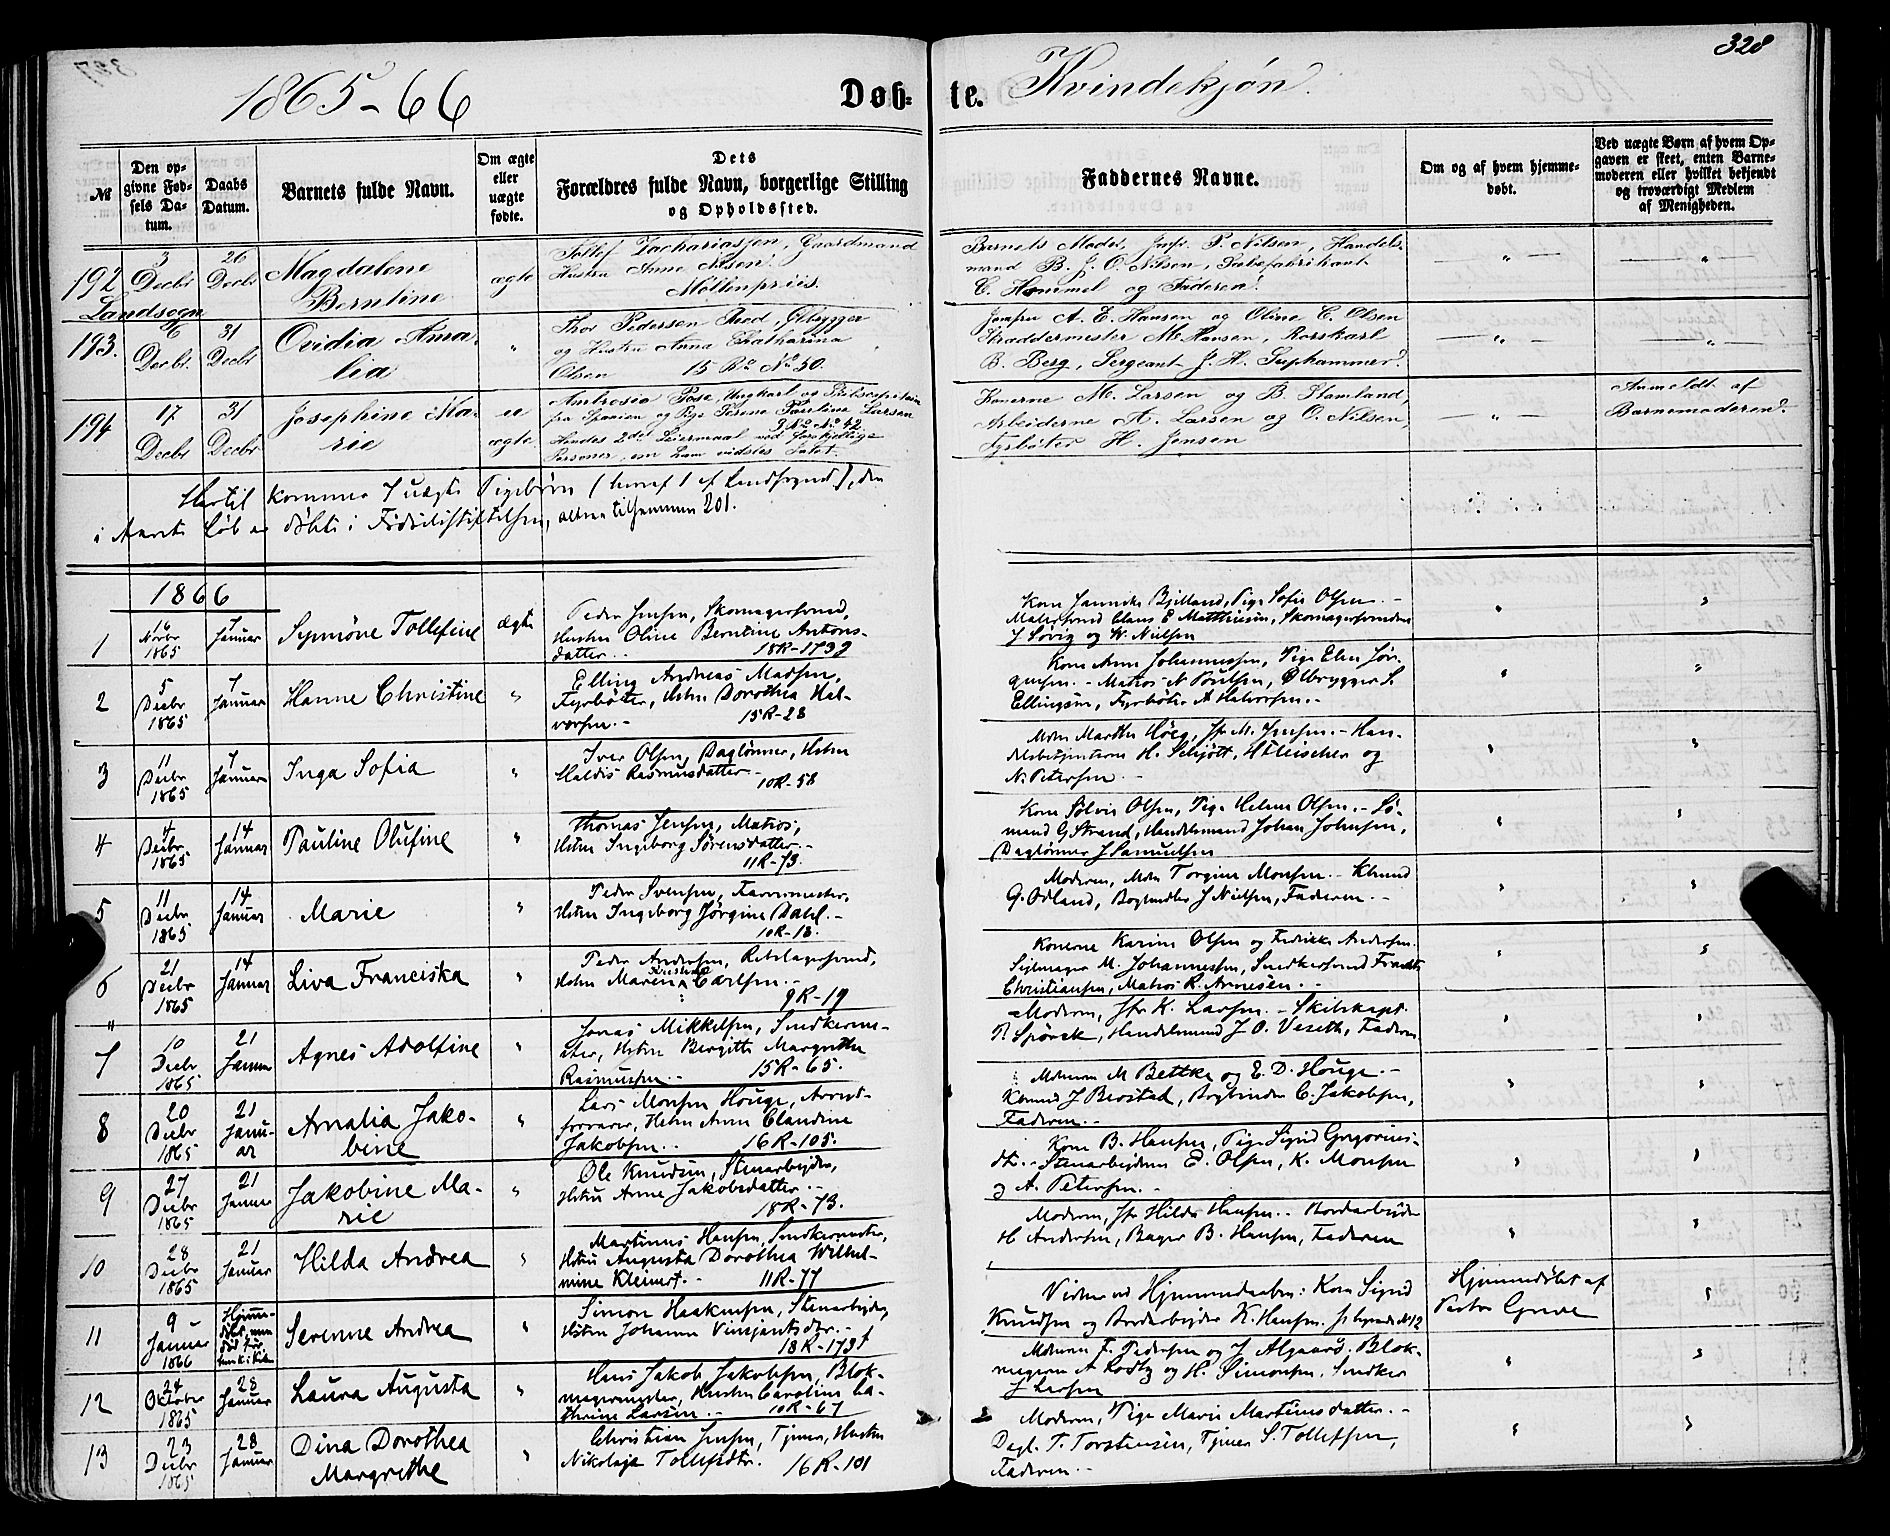 328
1865-66
Døb-
te.
Kvindekjøn.
№
Den op-
givne Fød-
sels Da-
tum.
Daabs
Datum.
Barnets fulde Navn.
Om ægte
eller
uægte
fødte.
Dets
Forældres fulde Navn, borgerlige Stilling
og Opholdssted.
Faddernes Navne.
Om og af hvem hjemme-
døbt.
Ved uægte Børn af hvem Op-
gaven er skeet, enten Barne-
moderen eller hvilket bekjendt
og troværdigt Medlem
af Menigheden.
192
Landsogn
3
Decbr
26
Decbr
Magdalene
Berntine
ægte
Tollef Zachariassen, Gaardmand
Hustru Anne Nilsen.
Möllenpriis.
Barnets Moder, Jnfr. P. Nilsen, Handels-
mand B. J. O. Nilsen, Sæbefabrikant
C. Hammel og Faderen.
193.
6
Decbr.
31
Decbr
Ovidia Ama-
lia
"
Thor Pedersen Røed, Ølbrygger
og Hustru Anna Catharina
Olsen 15 R. No 50.
Jomfru A. E. Hansen og Oline C. Olsen
Skræddermester M. Hansen, Rorskarl
B. Berg, Sergeant J. H. Suphammer.
194
17
Decbr
31
Decbr
Josephine Ma-
rie
u
ægte
Ambrosio Pose, Ungkarl og Skibscapitain
fra Spanien og Pige Serine Pauline Larsen
3 R. No 42
Hendes 2det Leiermaal ved forskjellige
Personer, om ham vidstes Intet.
Konerne M. Larsen og B. Stamland,
Arbeiderne A. Larsen og O. Nilsen,
Fyrbøter H. Jensen
Anmeldt af
Barnemoderen.
Hertil kommer 7 uægte Pigebørn (heraf 1 af Landsognet), der
i Aarets Løb er døbte i Fødselsstiftelsen, altsaa tilsammen 201.
1866
1
16
Novbr
1865
7
Januar
Synnöne Tollefine
ægte
Peder Jensen, Skomagersvend,
Hustru Oline Berntine Antons-
datter.. 18R-173
Kone Jannike Bjelland, Pige Sofie Olsen.-
Malersvend Claus E Matthiesen, Skomagersvendene
J Sövig og W. Nielsen
2
5
Decbr
1865
7
Januar
Hanne Christine
"
Elling Andreas Madsen,
Fyrbøter, Hstru Dorothea Hal-
vorsen.- 15R-28
Kone Anne Johannessen, Pige Elen Jör-
gensen.- Matros N Poulsen, Ølbrygger S.
Ellingsen, Fyrbøter A Halvorsen.-
3
11
Decbr
1865
7
Januar
Inga Sofia
"
Iver Olsen, Daglønner, Hstru
Haldis Rasmusdatter-
10R-58
Mdm Marthe Höeg, Jfr M. Jensen.- Han-
delsbetjentene H. Schjött, H Fleischer og
N. Petersen.-
4
4
Decbr
1865
14
Januar
Pauline Olufine
"
Thomas Jensen, Matros,
Hstru Ingeborg Sörensdatter.-
11R-73.
Kone Sølvie Olsen, Pige Helene Olsen.- Sö-
mand G Strand, Handelsmand Johan Johnsen,
Daglønner J Samuelsen
5
11
Decbr
1865
14
Januar
Marie
"
Peder Svensen, Farvemester,
Hstru Ingeborg Jörgine Dahl.-
10R-18.
Moderen, Mdm Torgine Monsen.- Khmnd
G. Odland, Boghandler J Nielsen, Faderen.-
6
21
Decbr
1865
14
Januar
Liva Franciska
"
Peder Andersen, Rebslagersvend,
Hstru Maren Carlsen.-
9R-19
Konerne Karine Olsen og Fredrikke Andersen.
Sejlmager M. Johannessen, Snedkersvend Fredr
Christiansen, Matros R. Arnesen.-
7
10
Decbr
1865
21
Januar
Agnes Adolfine
"
Jonas Mikkelsen, Snedkerme-
ster, Hstru Bergitte Margrethe
Rasmussen.- 15R-65.
Moderen, Jfr K. Larsen.- Skibskapt.
P. Spörck, Handelsmand J. O. Veseth, Faderen
8
20
Decbr
1865
21
Janu-
ar
Amalia Jako-
bine
"
Lars Monsen Houge, Arrest-
forvarer, Hstru Anne Claudine
Jakobsen.. 16R-105.
Mdmerne M Bettke og E. D. Houge.-
Khmnd J Berstad, Bogbinder C. Jakobsen,
Faderen.-
9
27
Decbr
1865
21
Januar
Jakobine Ma-
rie
"
Ole Knudsen, Stenarbejder,
Hstru Anne Jakobsdatter.-
18R-73.
Kone B. Hansen, Pige Sigrid Gregorius-
dt.- Stenarbejderne E. Olsen, K. Monsen
og A. Petersen.-
10
28
Decbr
1865
21
Januar
Hilda Andrea
"
Martinus Hansen, Snedkermester,
Hstru Augusta Dorothea Wilhel-
mine Kleinert.- 11R-77
Moderen, Jfr Hilda Hansen.- Bordarbejder
H Andersen, Bager B. Hansen, Faderen
11
9
Januar
1866
Serenne Andrea
"
Simon Haakensen, Stenarbejder,
Hstru Johanne Vinsjantsdtr.-
18R-173
Vidner ved Hjemmedaaben: Kone Sigrid
Knudsen og Bordarbejder K. Hansen.
Hjemmedøbt af
Pastor Greve
12
24
Oktober
1865
28
Januar
Laura Augusta
"
Hans Jakob Jakobsen, Blok-
magermester, Hustru Caroline Ca-
thrine Larsen.- 10R-67
Mdmerne F. Pedersen og J Algaard. Blok-
magerne A Rodtz og H. Simonsen, Snedker
J Larsen
13
23
Decbr
1865
28
Januar
Dina Dorothea
Margrethe
"
Christian Jensen, Tjener, Hustru
Nikolaja Tollefsdtr. 16R-101
Moderen, Pige Marie Martinusdatter.-
Dagl. T. Torstensen, Tjener S. Tollefsen,
Faderen.-